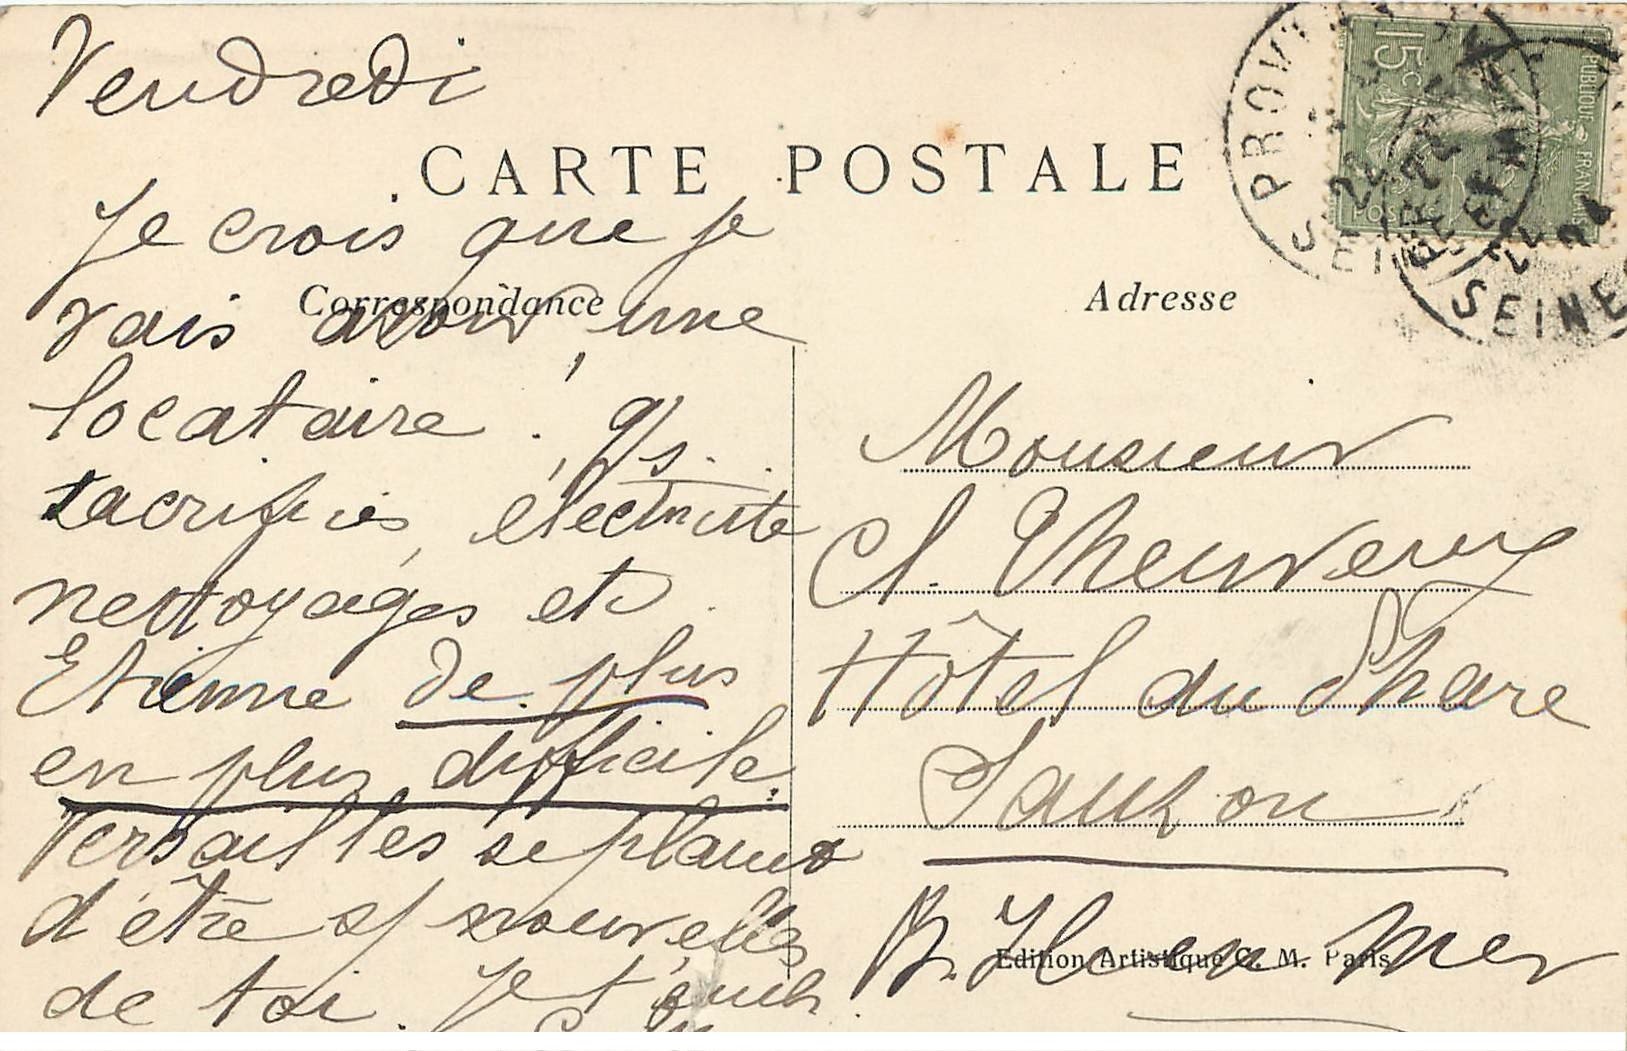 Vendredi
CARTE POSTALE
Je crois que je
Correspondance
vais avoir une
locataire ! qs.
sacrifices, électricité
nettoyages etc.
Etienne de plus
en plus difficile.
Versailles se plaint
d'être s/ nouvelles
de toi. Je t'
Adresse
Monsieur
Cl. Cheuvreux
Hôtel du Phare
Sauzon
B. Ile en Mer
Edition Artistique C. M. Paris
15c
PUBLIQUE FRANÇAISE
POSTES
PROVINS
SEINE
SEINE